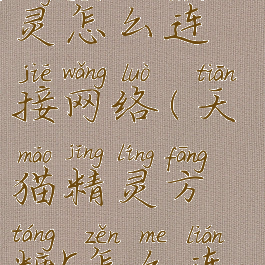 灵怎么连
jiē wǎng luò tiān
接网络(天
māo jīng líng fāng
猫精灵方
táng zěn me lián
糖怎么连